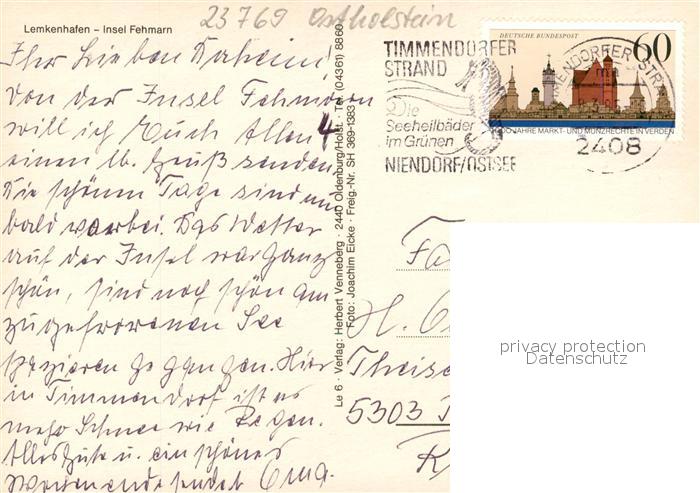 23769 Ostholstein
Lemkenhafen – Insel Fehmarn
Ihr Lieben Daheim!
Von der Insel Fehmarn
will ich Euch Allen 4
einen lb. Gruß senden.
Die schönen Tage sind nun
bald vorbei. Das Wetter
auf der Insel war ganz
schön, sind noch schön am
zugefrorenen See
spazieren gegangen. Hier
in Timmendorf ist es
mehr Schnee wie Regen.
Alles Gute u. ein schönes
Wochenende sendet Oma.
Le 6 · Verlag: Herbert Venneberg · 2440 Oldenburg/Holst. · Tel. (04361) 8860
Foto: Joachim Eicke · Freig.-Nr. SH 369-1383
TIMMENDORFER
STRAND
Die
Seeheilbäder
im Grünen
NIENDORF/OSTSEE
DEUTSCHE BUNDESPOST
60
1000 JAHRE MARKT- UND MÜNZRECHTE IN VERDEN
2408
Fa
H.
5303
privacy protection
Datenschutz